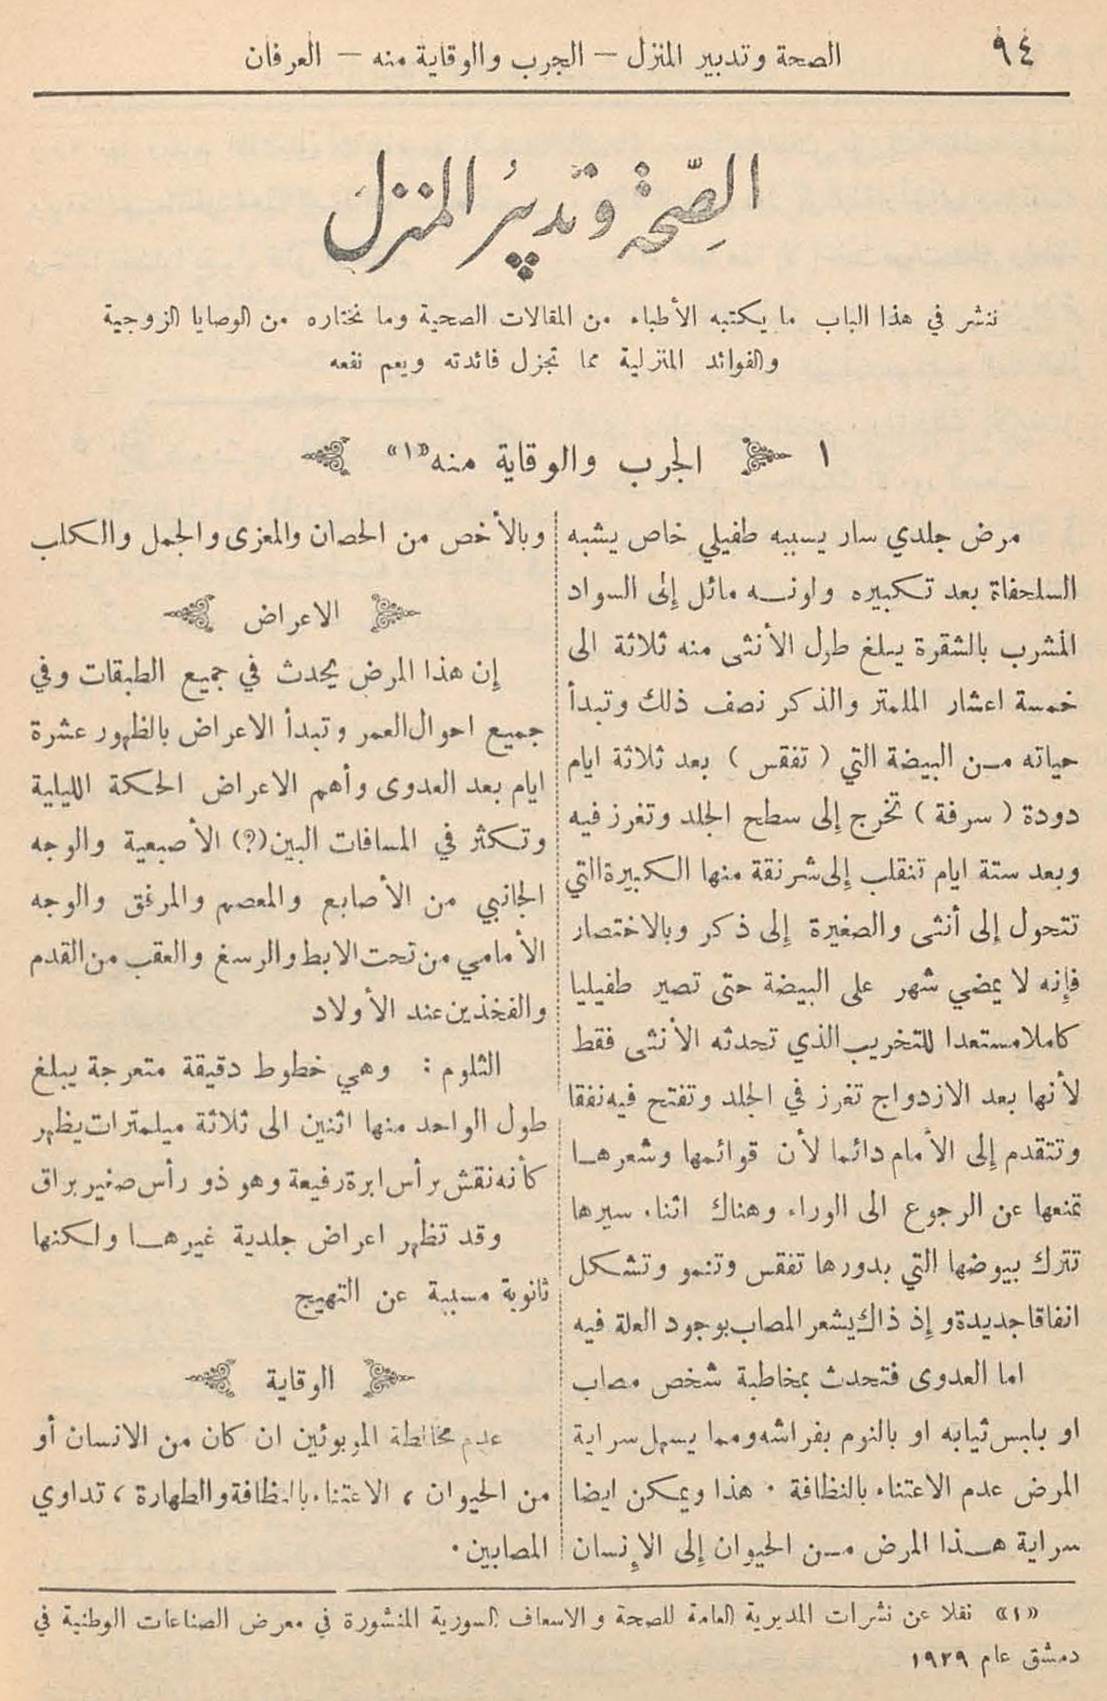 ٩٤
الصحة وتدبير المنزل — الجرب والوقاية منه — العرفان
الصِّحة وتدبيرُ المنزل
ننشر في هذا الباب ما يكتبه الأطباء من المقالات الصحية وما نختاره من الوصايا الزوجية
والفوائد المنزلية مما تجزل فائدته ويعم نفعه
١ الجرب والوقاية منه «١»
مرض جلدي سار يسببه طفيلي خاص يشبه
السلحفاة بعد تكبيره ولونـه مائل إلى السواد
المشرب بالشقرة يبلغ طول الأنثى منه ثلاثة الى
خمسة اعشار الملمتر والذكر نصف ذلك وتبدأ
حياته مـن البيضة التي ( تفقس ) بعد ثلاثة ايام
دودة ( سرفة ) تخرج إلى سطح الجلد وتغرز فيه
وبعد ستة ايام تنقلب إلى شرنقة منها الكبيرة التي
تتحول إلى أنثى والصغيرة إلى ذكر وبالاختصار
فإنه لا يمضي شهر على البيضة حتى تصير طفيليا
كاملا مستعدا للتخريب الذي تحدثه الأنثى فقط
لأنها بعد الازدواج تغرز في الجلد وتفتح فيه نفقا
وتتقدم إلى الأمام دائما لأن قوائمها وشعرهـا
تمنعها عن الرجوع الى الوراء وهناك اثناء سيرها
تترك بيوضها التي بدورها تفقس وتنمو وتشكل
انفاقا جديدة وإذ ذاك يشعر المصاب بوجود العلة فيه
اما العدوى فتحدث بمخاطبة شخص مصاب
او بلبس ثيابه او بالنوم بفراشه ومما يسهل سراية
المرض عدم الاعتناء بالنظافة . هذا ويمكن ايضا
سراية هـذا المرض مـن الحيوان إلى الإنسان
وبالأخص من الحصان والمعزى والجمل والكلب
الاعراض
إن هذا المرض يحدث في جميع الطبقات وفي
جميع احوال العمر وتبدأ الاعراض بالظهور عشرة
ايام بعد العدوى وأهم الاعراض الحكة الليلية
وتكثر في المسافات البين (؟) الأصبعية والوجه
الجانبي من الأصابع والمعصم والمرفق والوجه
الأمامي من تحت الابط والرسغ والعقب من القدم
والفخذين عند الأولاد
الثلوم : وهي خطوط دقيقة متعرجة يبلغ
طول الواحد منها اثنين الى ثلاثة ميلمترات يظهر
كأنه نقش برأس ابرة رفيعة وهو ذو رأس صغير براق
وقد تظهر اعراض جلدية غيرهـا ولكنها
ثانوية مسببة عن التهيج
الوقاية
عدم مخالطة الموبوئين ان كان من الانسان أو
من الحيوان ، الاعتناء بالنظافة والطهارة ، تداوي
المصابين .
«١» نقلا عن نشرات المديرية العامة للصحة والاسعاف السورية المنشورة في معرض الصناعات الوطنية في
دمشق عام ١٩٢٩